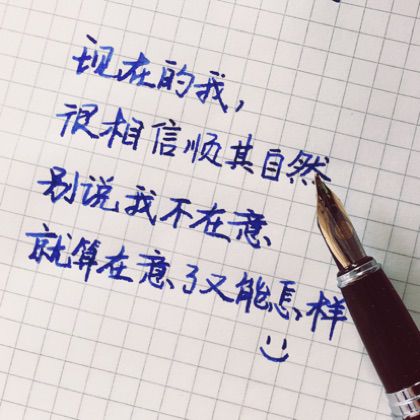 现在的我，
很相信顺其自然
别说我不在意
就算在意了又能怎样